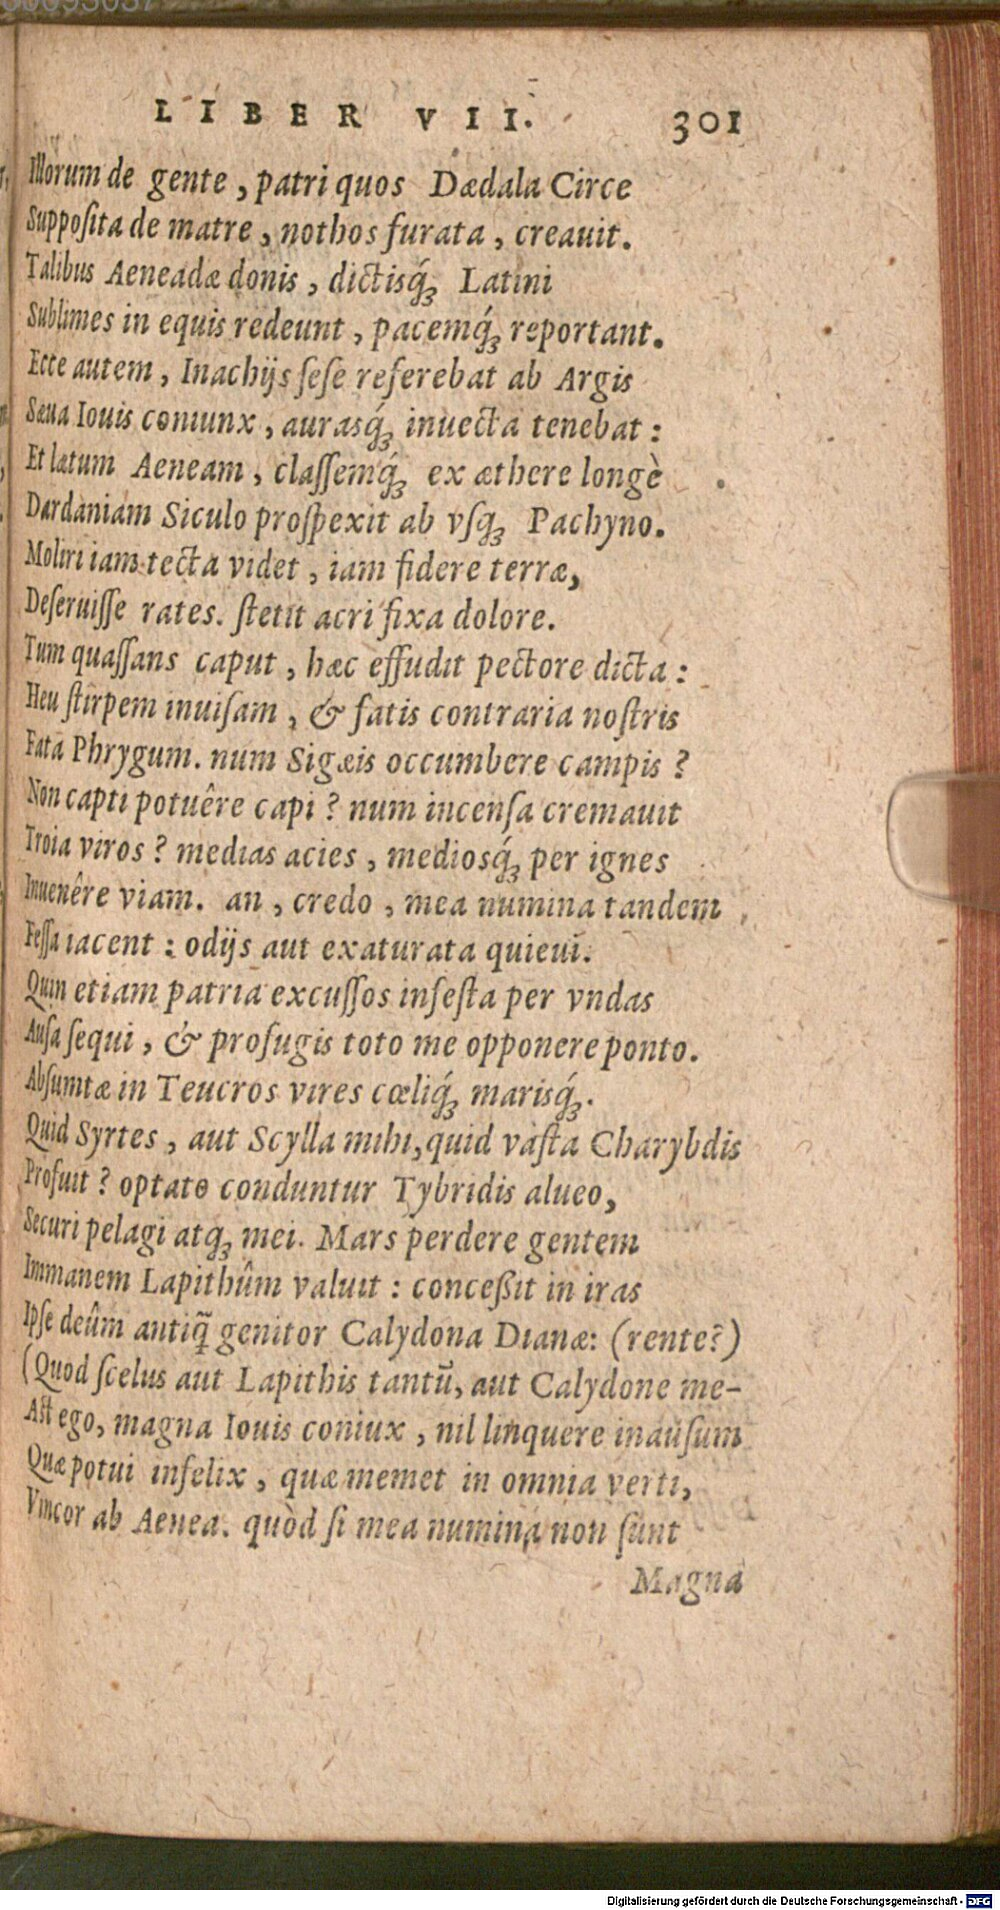 LIBER VII. 301
Illorum de gente, patri quos Dædala Circe
Supposita de matre, nothos furata, creauit.
Talibus Aeneadæ donis, dictisq́; Latini
Sublimes in equis redeunt, pacemq́; reportant.
Ecce autem, Inachijs sese referebat ab Argis
Sæua Iouis coniunx, aurasq́; inuecta tenebat:
Et lætum Aeneam, classemq́; ex æthere longè
Dardaniam Siculo prospexit ab vsq; Pachyno.
Moliri iam tecta videt, iam fidere terræ,
Deseruisse rates. stetit acri fixa dolore.
Tum quassans caput, hæc effudit pectore dicta:
Heu stirpem inuisam, & fatis contraria nostris
Fata Phrygum. num Sigæis occumbere campis?
Non capti potuêre capi? num incensa cremauit
Troia viros? medias acies, mediosq́; per ignes
Inuenêre viam. an, credo, mea numina tandem
Fessa iacent: odijs aut exaturata quieui.
Quin etiam patria excussos infesta per vndas
Ausa sequi, & profugis toto me opponere ponto.
Absumtæ in Teucros vires cœliq́; marisq́;.
Quid Syrtes, aut Scylla mihi, quid vasta Charybdis
Profuit? optato conduntur Tybridis alueo,
Securi pelagi atq; mei. Mars perdere gentem
Immanem Lapithûm valuit: conceßit in iras
Ipse deûm antiq̃ genitor Calydona Dianæ: (rente?)
(Quod scelus aut Lapithis tantũ, aut Calydone me-
Ast ego, magna Iouis coniux, nil linquere inausum
Quæ potui infelix, quæ memet in omnia verti,
Vincor ab Aenea. quòd si mea numina non sunt
Magna
Digitalisierung gefördert durch die Deutsche Forschungsgemeinschaft - DFG